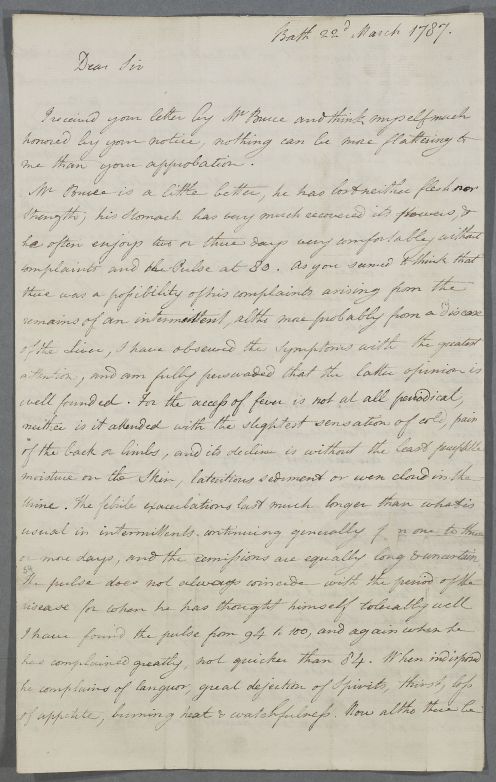 Bath 22d March 1787.
Dear Sir
I received your letter by Mr Bruce and think myself much
honored by your notice, nothing can be more flattering to
me than your approbation.
Mr Bruce is a little better, he has lost neither flesh nor
strength; his Stomach has very much recovered its powers, &
he often enjoys two or three days very comfortable, without
complaints and the Pulse at 80. As you seemed to think that
there was a possibility of his complaints arising from the
remains of an intermittent, altho more probably from a disease
of the Liver, I have observed the symptoms with the greatest
attention, and am fully persuaded that the latter opinion is
well founded. For the access of fever is not at all periodical,
neither is it attended with the slightest sensation of cold, pain
of the back or limbs, and its decline is without the least perceptible
moisture on the Skin, lateritious sediment or even cloud in the
Urine. The febrile exacerbations last much longer than what is
usual in intermittents continuing generally from one to three
or more days, and the remissions are equally long & uncertain.
The pulse does not always coincide with the period of the
disease for when he has thought himself tolerably well
I have found the pulse from 94 to 100, and again when he
has complained greatly, not quicker than 84. When indisposed
he complains of languor, great dejection of Spirits, thirst, loss
of appetite, burning heat & watchfulness. Now altho there be